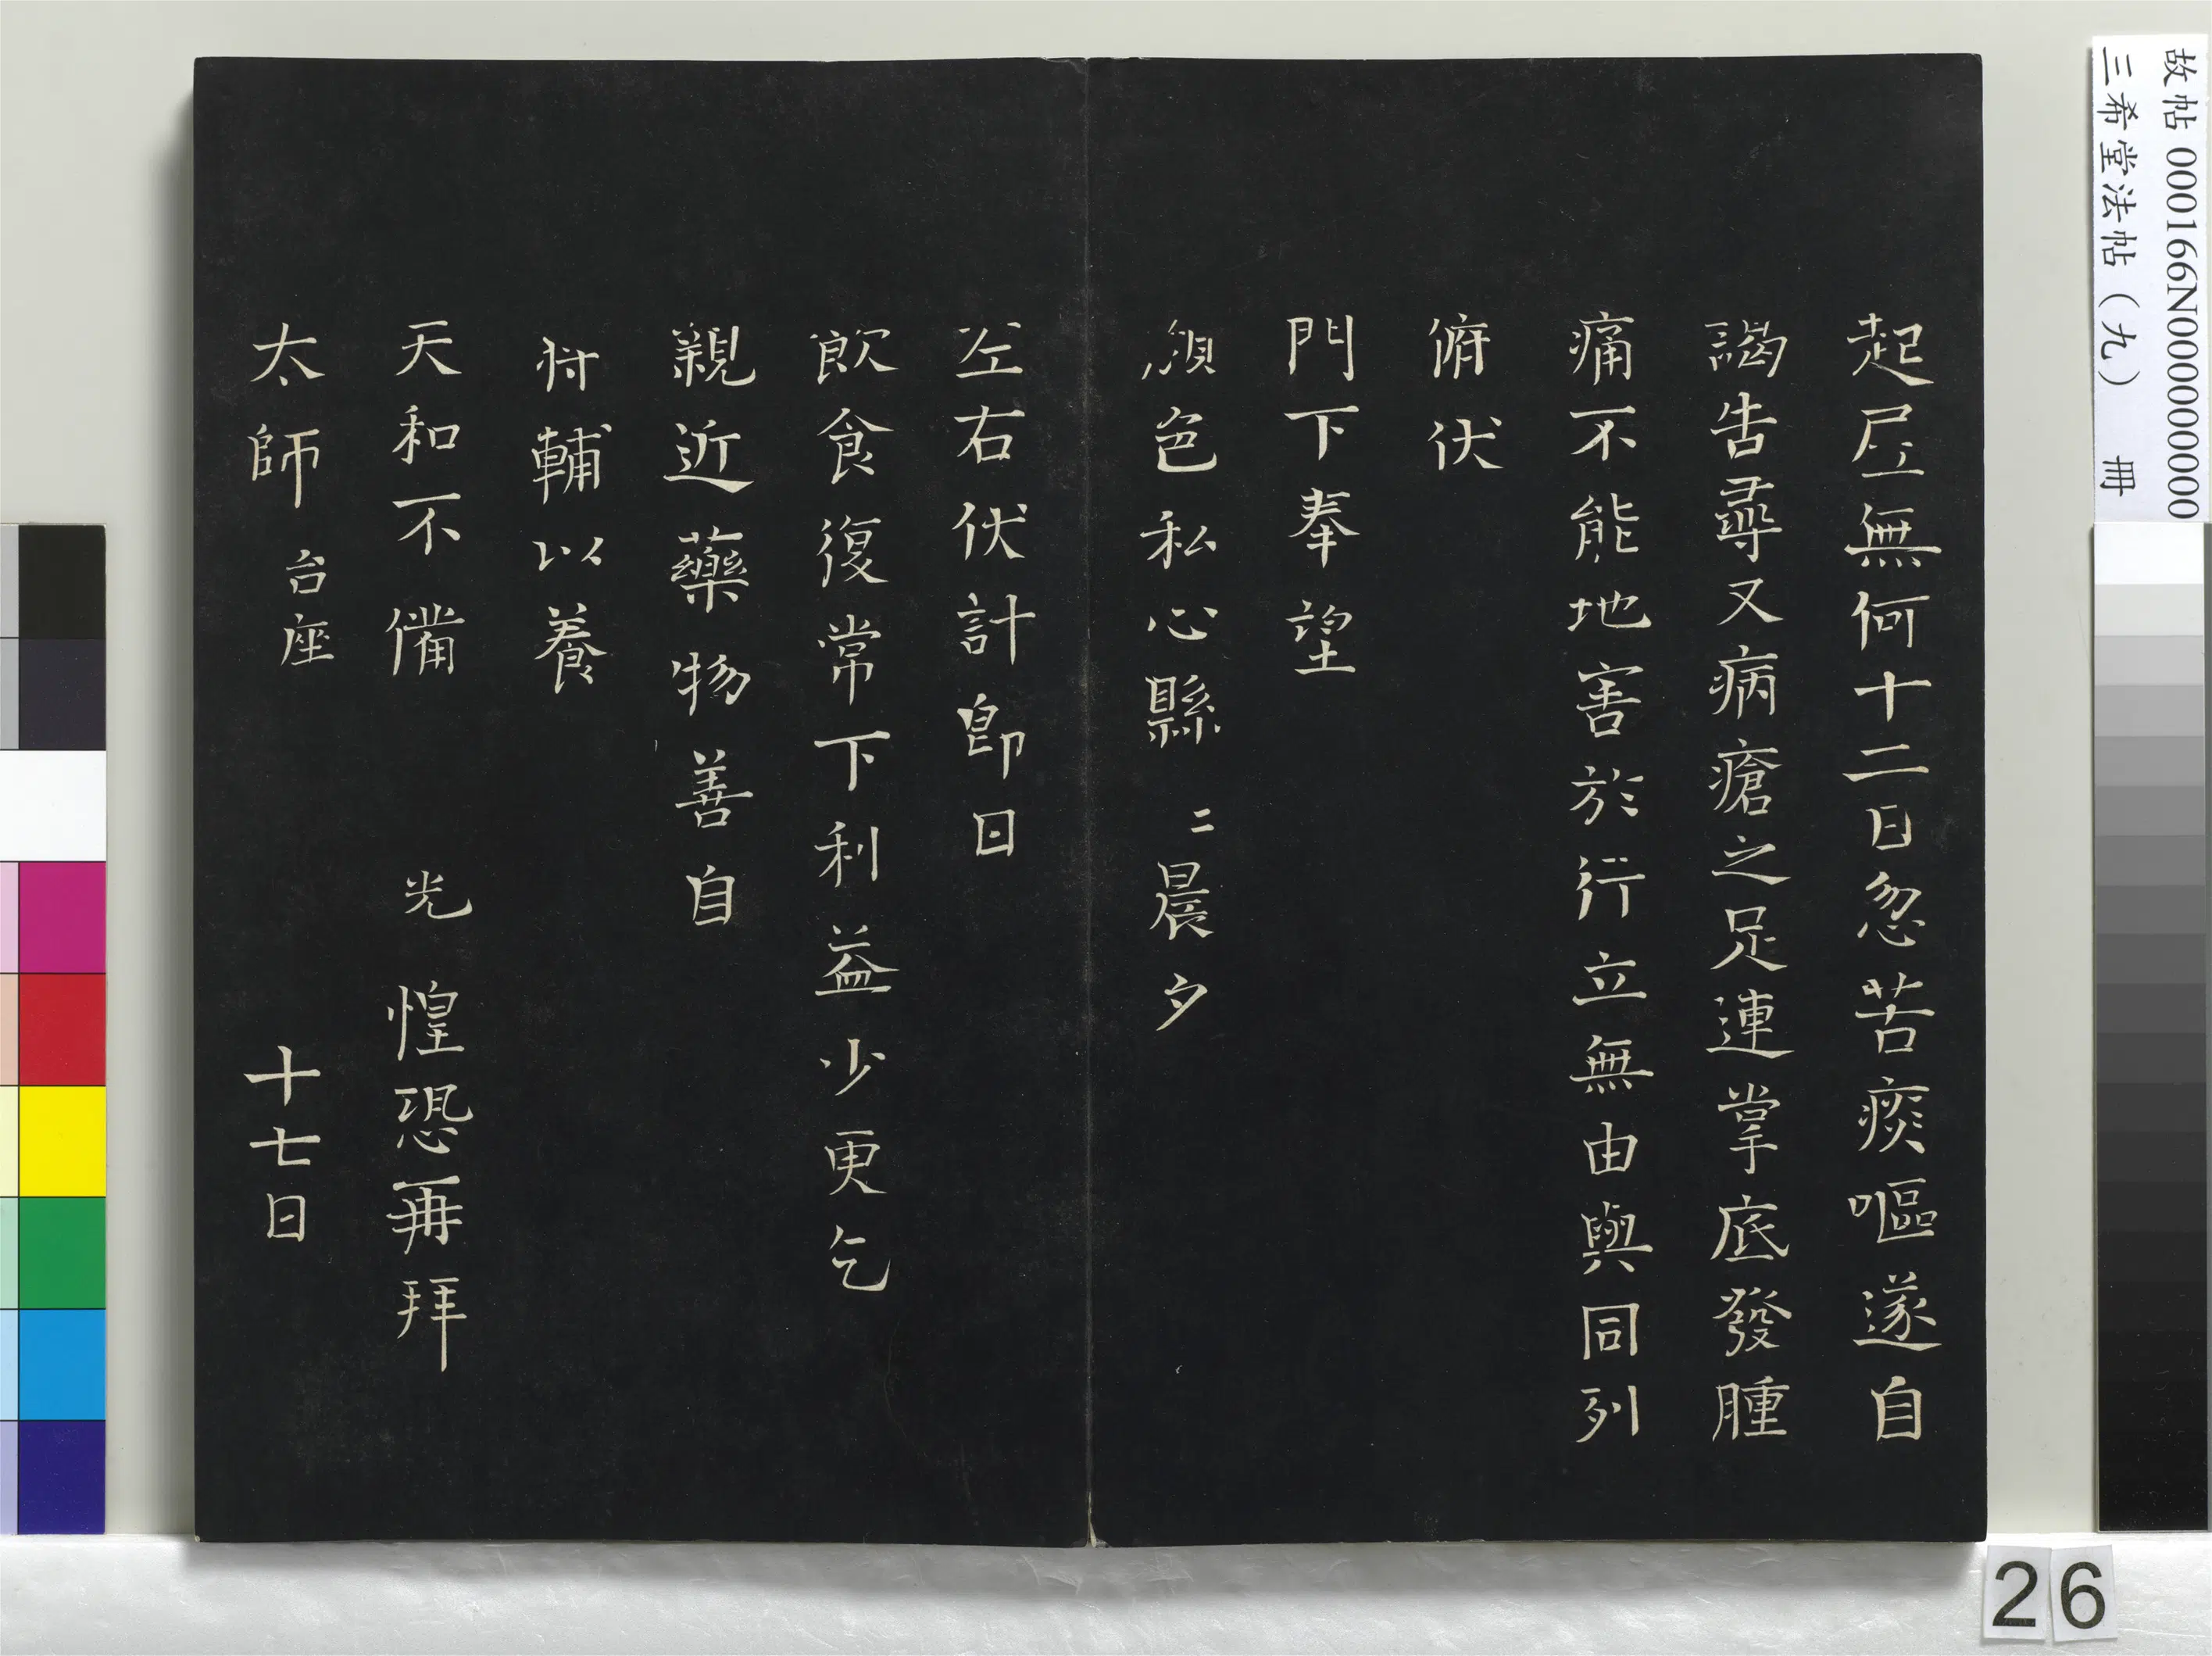 起居無何十二日忽苦痰嘔遂自
謁告尋又病瘡之足連掌底發腫
痛不能地害於行立無由與同列
俯伏
門下奉望
顏色私心縣〻晨夕
左右伏計即日
飲食復常下利益少更乞
親近藥物善自
將輔以養
天和不備 光 惶恐再拜
太師 台座 十七日
故帖 000166N000000000
三希堂法帖（九） 冊
26